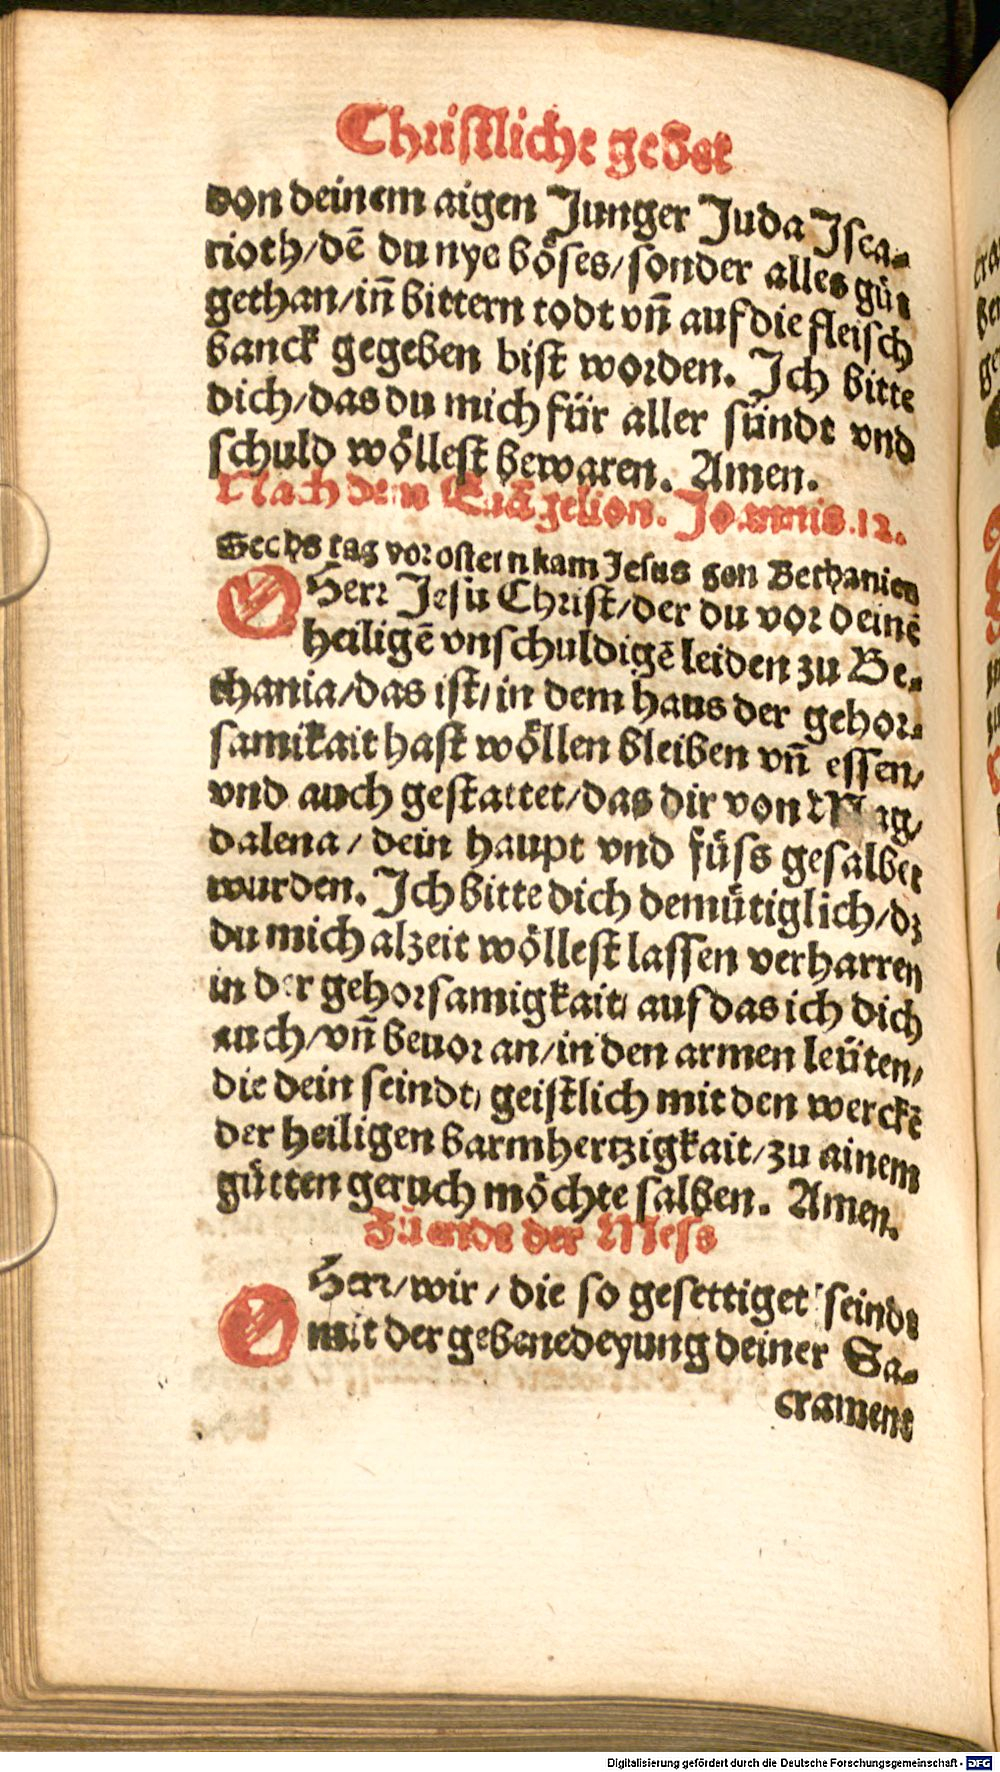 Christliche gebet
von deinem aigen Junger Juda Jsca-
rioth/dē du nye böses/sonder alles gůt
gethan/in̄ bittern todt vn̄ auf die fleisch
banck gegeben bist worden. Jch bitte
dich/das du mich für aller sündt vnd
schuld wöllest bewaren. Amen.
Nach dem Euāgelion. Joannis.12.
Sechs tag vor ostern kam Jesus gen Bethanien
O Herr Jesu Christ/der du vor deinē
heiligē vnschuldigē leiden zu Be-
thania/das ist/in dem haus der gehor-
samikait hast wöllen bleiben vn̄ essen/
vnd auch gestattet/das dir von Mag/
dalena/ dein haupt vnd füss gesalbet
wurden. Jch bitte dich demütiglich/dz
du mich alzeit wöllest lassen verharren
in der gehorsamigkait/ auf das ich dich
auch/vn̄ beuor an/in den armen leüten/
die dein seindt/ geistlich mit den werckē
der heiligen barmhertzigkait/zu ainem
gütten geruch möchte salben. Amen.
Zu ende der Mess
O Herr/wir/ die so gesettiget seindt
mit der gebenedeyung deiner Sa-
crament
Digitalisierung gefördert durch die Deutsche Forschungsgemeinschaft - DFG